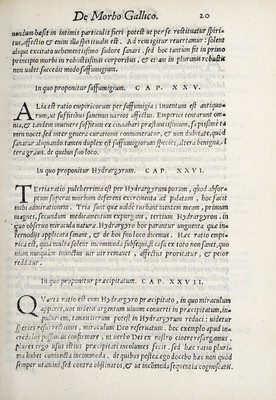 De Morbo Gallico. 20
nandum hæst in intimis particulis fieri potest ut per se restituatur spiri-
tus, affectio & enim illa spiritualis est. Ad rem igitur reuertamur: solent
aliqui excitato uehementissimo sudore sanari. sed hoc tantùm fit in primo
principio morbi in robustissimis corporibus, & etiam in pluramis robustis
non ualet succedit modo suffumigium.
In quo proponitur suffumigium. CAP. XXV.
ALia est ratio empiricorum per suffumigia: Inuentum est antiquo-
rum, ut suffitibus sanemur uarios affectus. Emperici tentarunt om-
nia, & tandem inuenere suffitum ex cinabari præstantissimum, sepissimi ta
men nocet, sed inter genera curationis connumeratur, & non dubitate, quòd
sanatur aliquando tamen duplex est suffumigiorum species, altera benigna,
tera grauis. de quibus suo loco.
In quo proponitur Hydrargyrum. CAP. XXVI.
TErtia ratio pulcherrima est per Hydrargyrum purum, quod absor-
ptum superat morbum deferens excrementa ad palatum, hoc facit
mihi admirationem. Tria sunt quæ adde turbant mentem meam, primum
magnes, secundum medicamentum expurgans, tertium Hydrargyron. in
quo obseruo miracula naturæ. Hydrargyro hoc parantur unguenta quæ in-
ternodiis applicita sanant, & de hos suo loco dicemus. Hæc ratio empi-
rica est, quia multa solent incommoda subsequi, si casu ex toto non sanet, quo
niam nunquam inunctus uir uir remanet, affectus prioristat, & peior
redditur.
In quo proponitur præcipitatum. CAP. XXVII.
QVarta ratio est cum Hydrargyro præcipitato, in quo miraculum
apparet, uos uidetis argentum uiuum conuerti in præcipitatum, in
puluerem, tamen iterum potest in Hydrargyrum reduci: uidetur
species resurrectionis, miraculum Deo reseruatum. hoc exemplo apud in-
credulos possumus confirmare, ut uerbo Dei ex nostro cinere resurgamus.
plures ergo usus istius præcipitati incolumes fecit. sed hæc ratio pluri-
ma habet comiuncta incommoda. de quibus postea. ego doceo hæc non quòd
semper utamini, sed contra obstinatos, & ut incommoda sequentia cognoscatis.